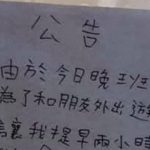 公告
由於今日晚班
為了和朋友外出遊
讓我提早兩小時